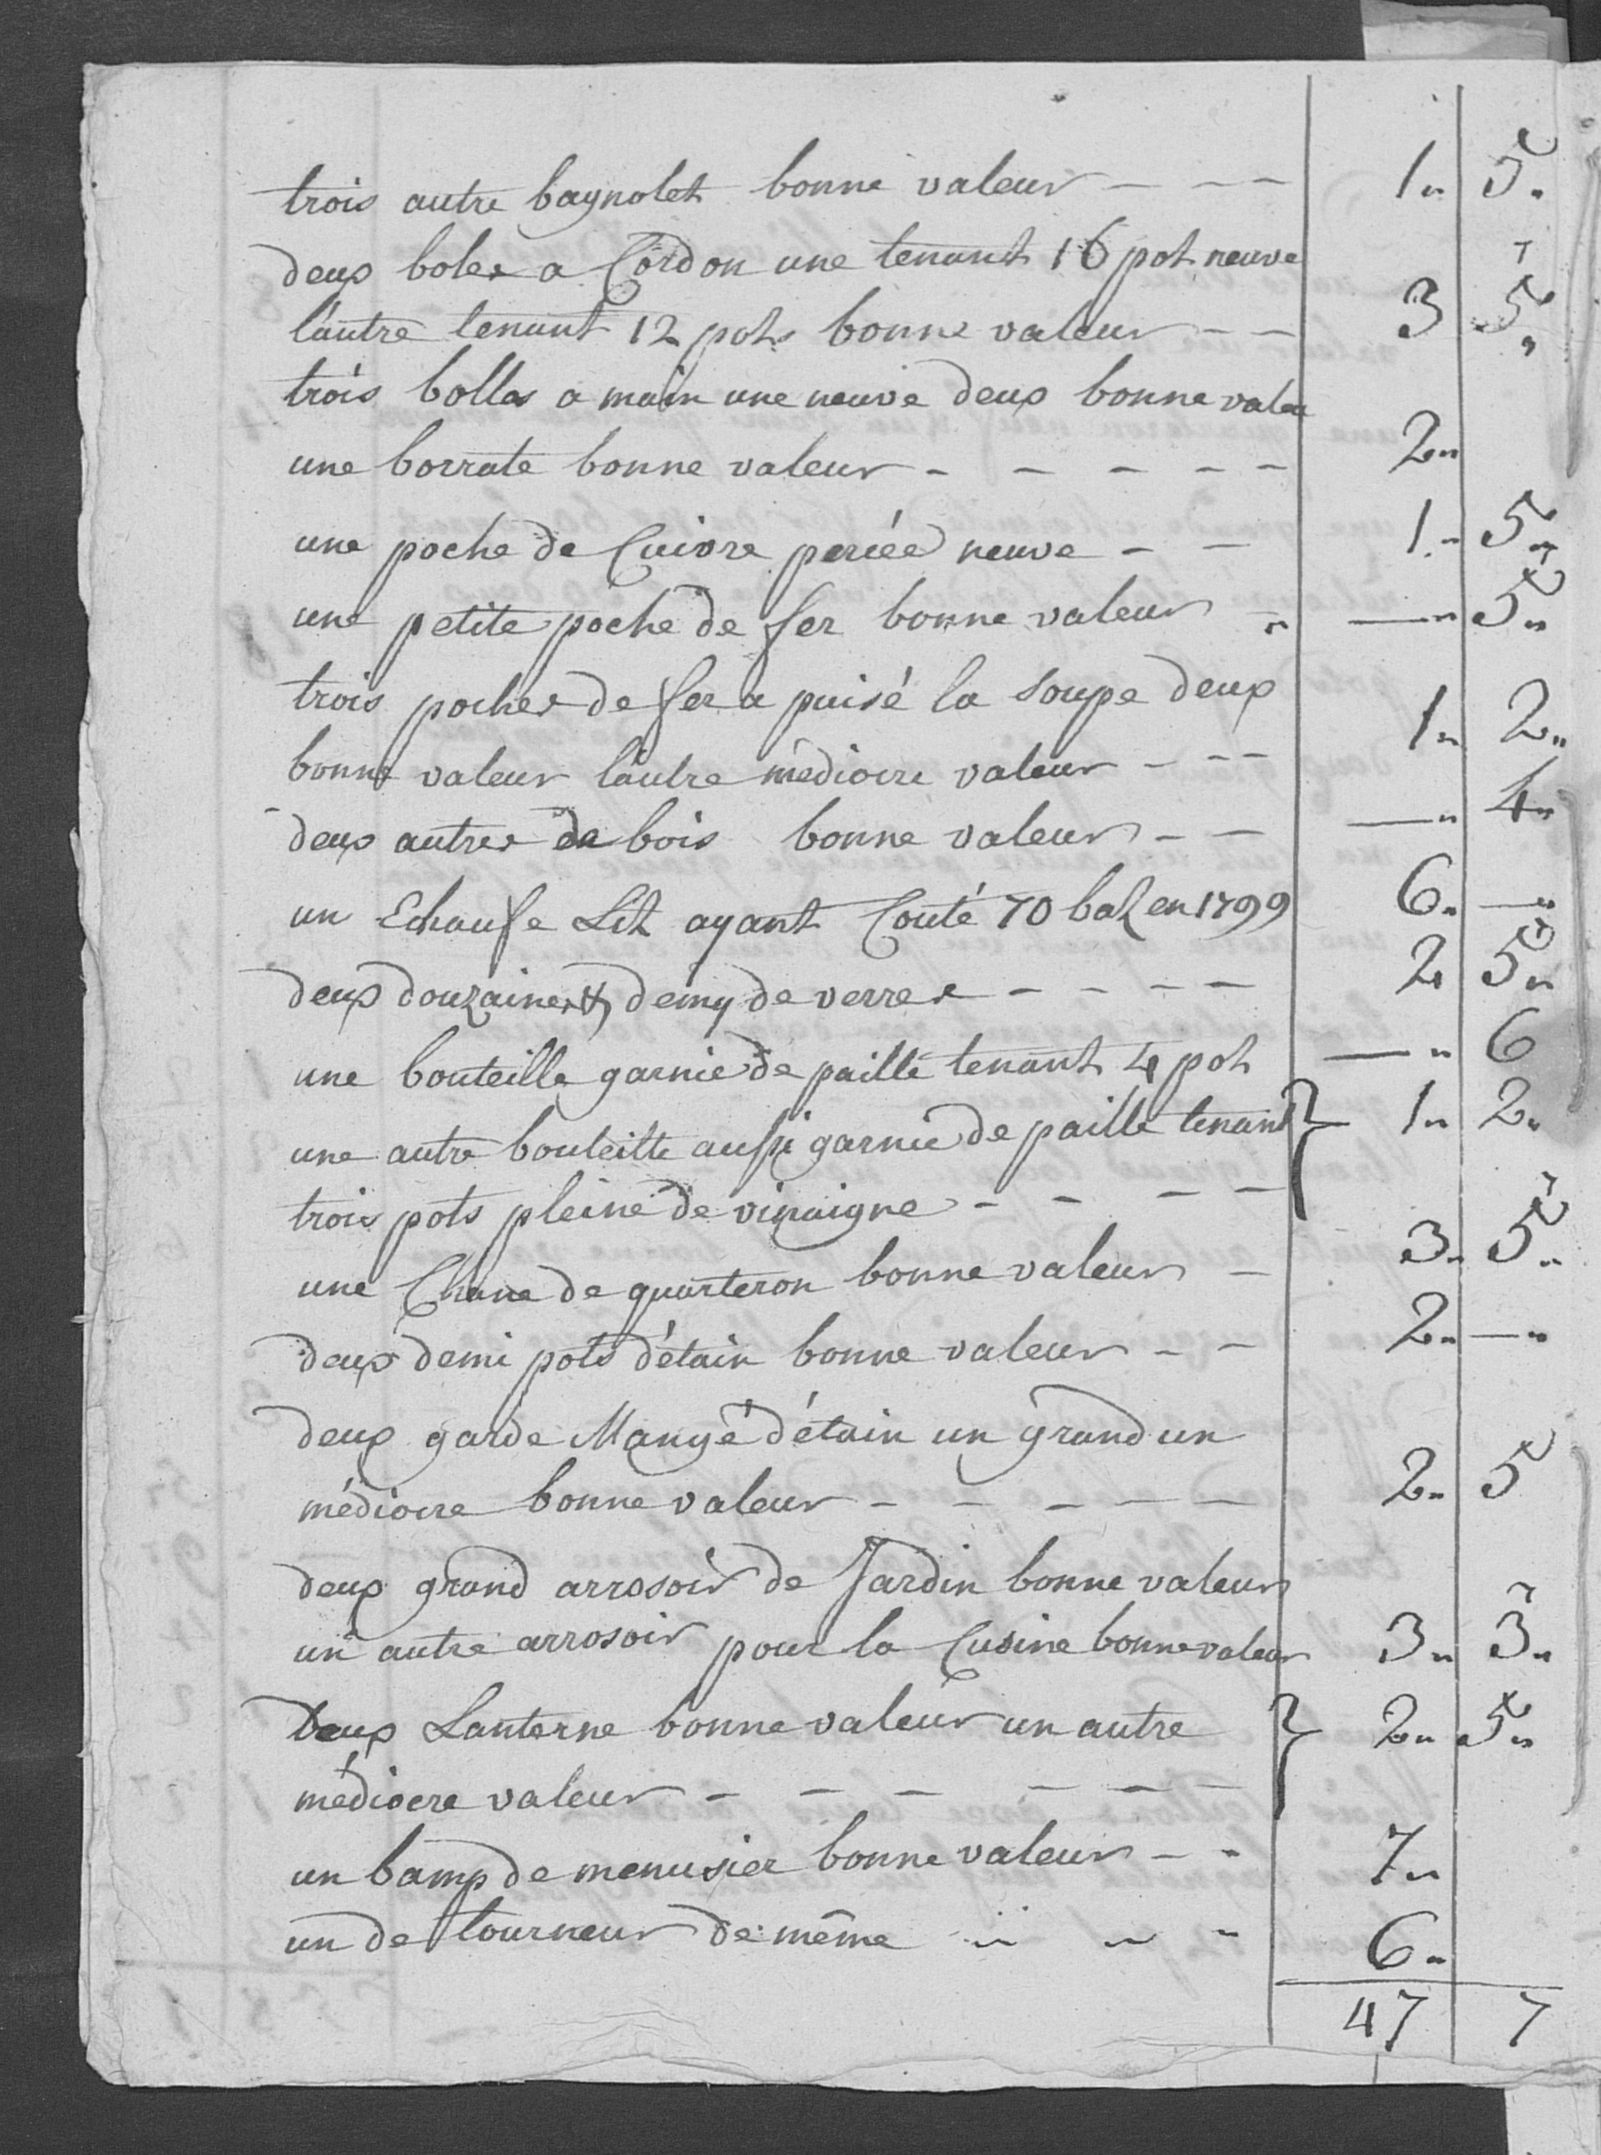 trois autre bagnolet bonne valeur - - - 1" 5"
deux boles a Cordon une tenant 16 pot neuve
l'autre tenant 12 pots bonne valeur - - 3 5"
trois bolles a main une neuve deux bonne valeu
une borrate bonne valeur - - - - - 2"
une poche de Cuivre perieé neuve - - 1" 5"
une petite poche de fer bonne valeur - — " 5"
trois poches de fer a puisé la soupe deux
bonne valeur l'autre médiocre valeur - - - 1" 2"
deux autres de bois bonne valeur - - — " 4"
un Echaufe Lit ayant Couté 70 batz en 1799 6" — "
deux douzaines & demy de verres - - - - 2 5"
une bouteille garnie de paille tenant 4 pot — " 6
une autre bouteille aussi garnie de paille tenant } 1" 2"
trois pots pleine de vinaigre - - - -
une Chane de quarteron bonne valeur - 3" 5"
deux demi pots d'étain bonne valeur - - 2" — "
deux garde Mangé d'étain un grand un
médiocre bonne valeur - - - - - 2" 5
deux grand arrosoir de Jardin bonne valeur
un autre arrosoir pour la Cusine bonne valeur 3" 3"
Deux Lanterne bonne valeur un autre } 2" 5"
médiocre valeur - - - - - -
un bamp de menusier bonne valeur - - 7"
un de tourneur de même " " - 6"
47 7